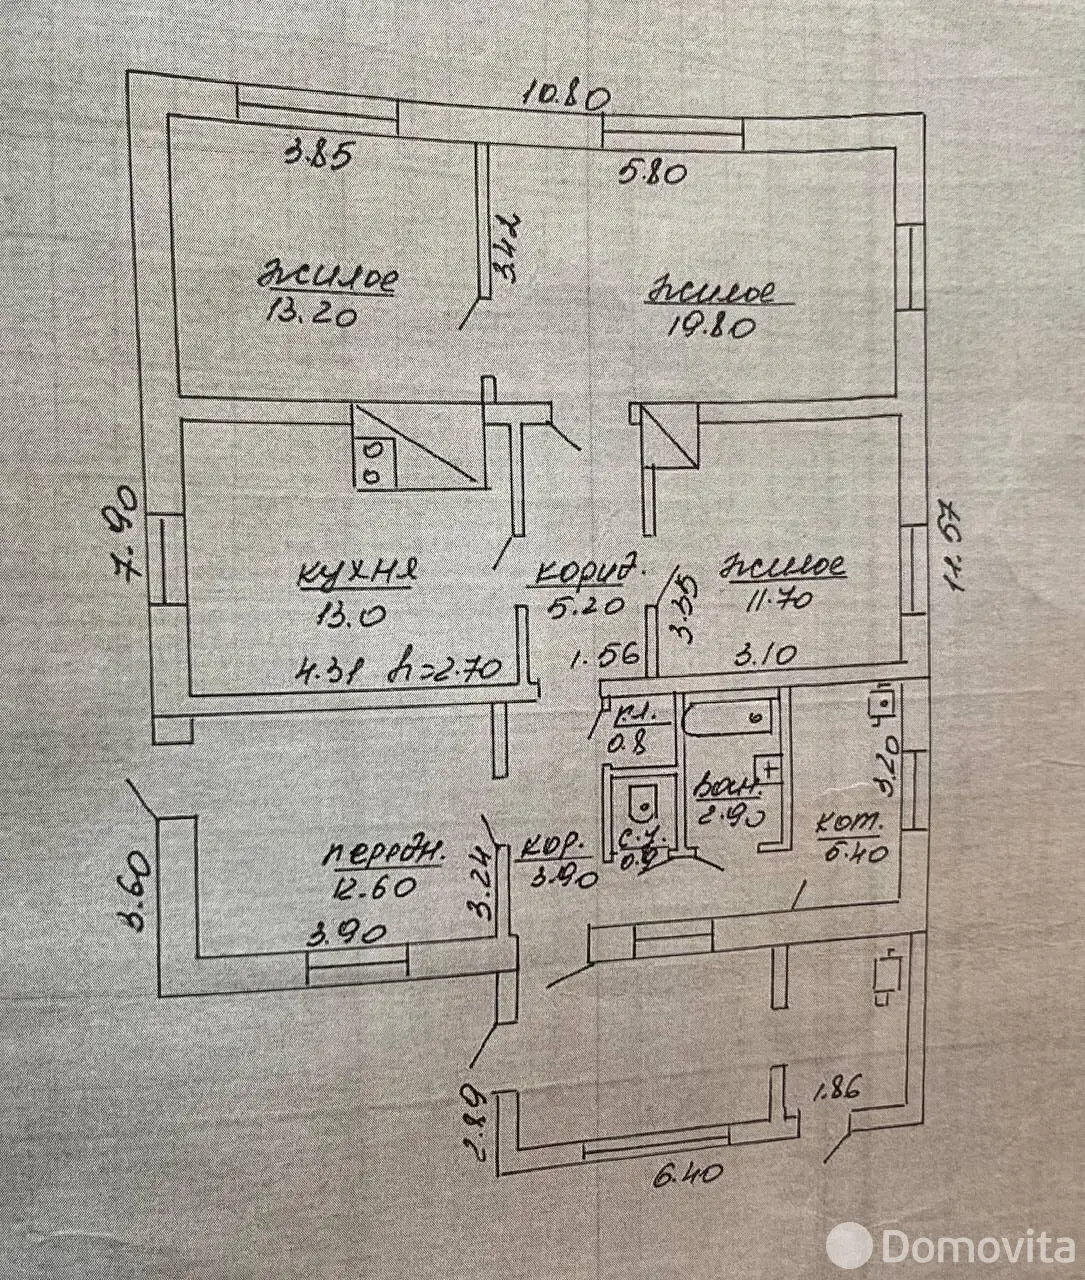 10.80
3.85
5.80
3.42
жилое
13.20
жилое
19.80
7.90
11.57
кухня
13.0
4.31 h=2.70
корид.
5.20
1.56
3.35
жилое
11.70
3.10
кл.
0.8
Ван.
2.90
3.20
кот.
5.40
с.у.
0.9
кор.
3.90
передн.
12.60
3.24
3.90
3.60
2.89
1.86
6.40
Domovita